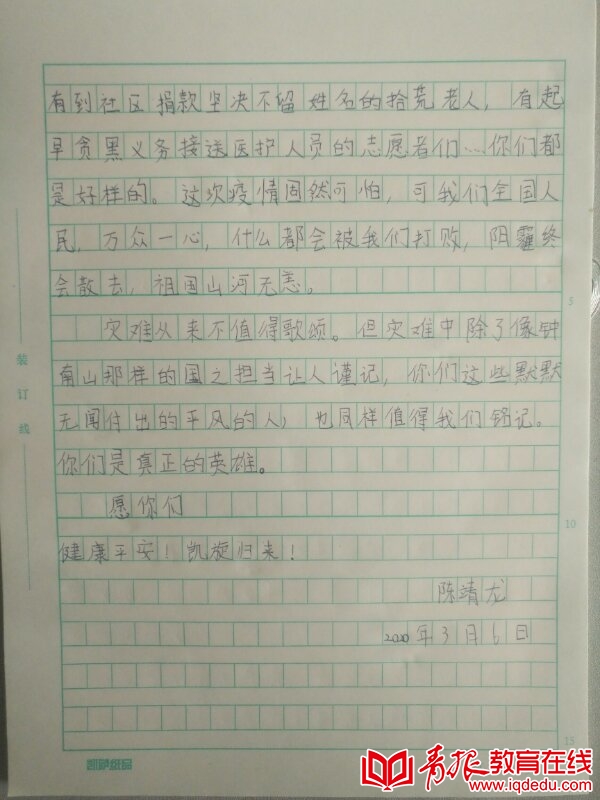 有到社区捐款坚决不留姓名的拾荒老人，有起
早贪黑义务接送医护人员的志愿者们……你们都
是好样的。这次疫情固然可怕，可我们全国人
民，万众一心，什么都会被我们打败，阴霾终
会散去，祖国山河无恙。
灾难从来不值得歌颂。但灾难中除了像钟
南山那样的国之担当让人谨记，你们这些默默
无闻付出的平凤的人，也同样值得我们铭记。
你们是真正的英雄。
愿你们
健康平安！凯旋归来！
陈靖龙
2020年3月6日
装订线
5
10
15
凯萨纸品
青报教育在线
www.iqdedu.com